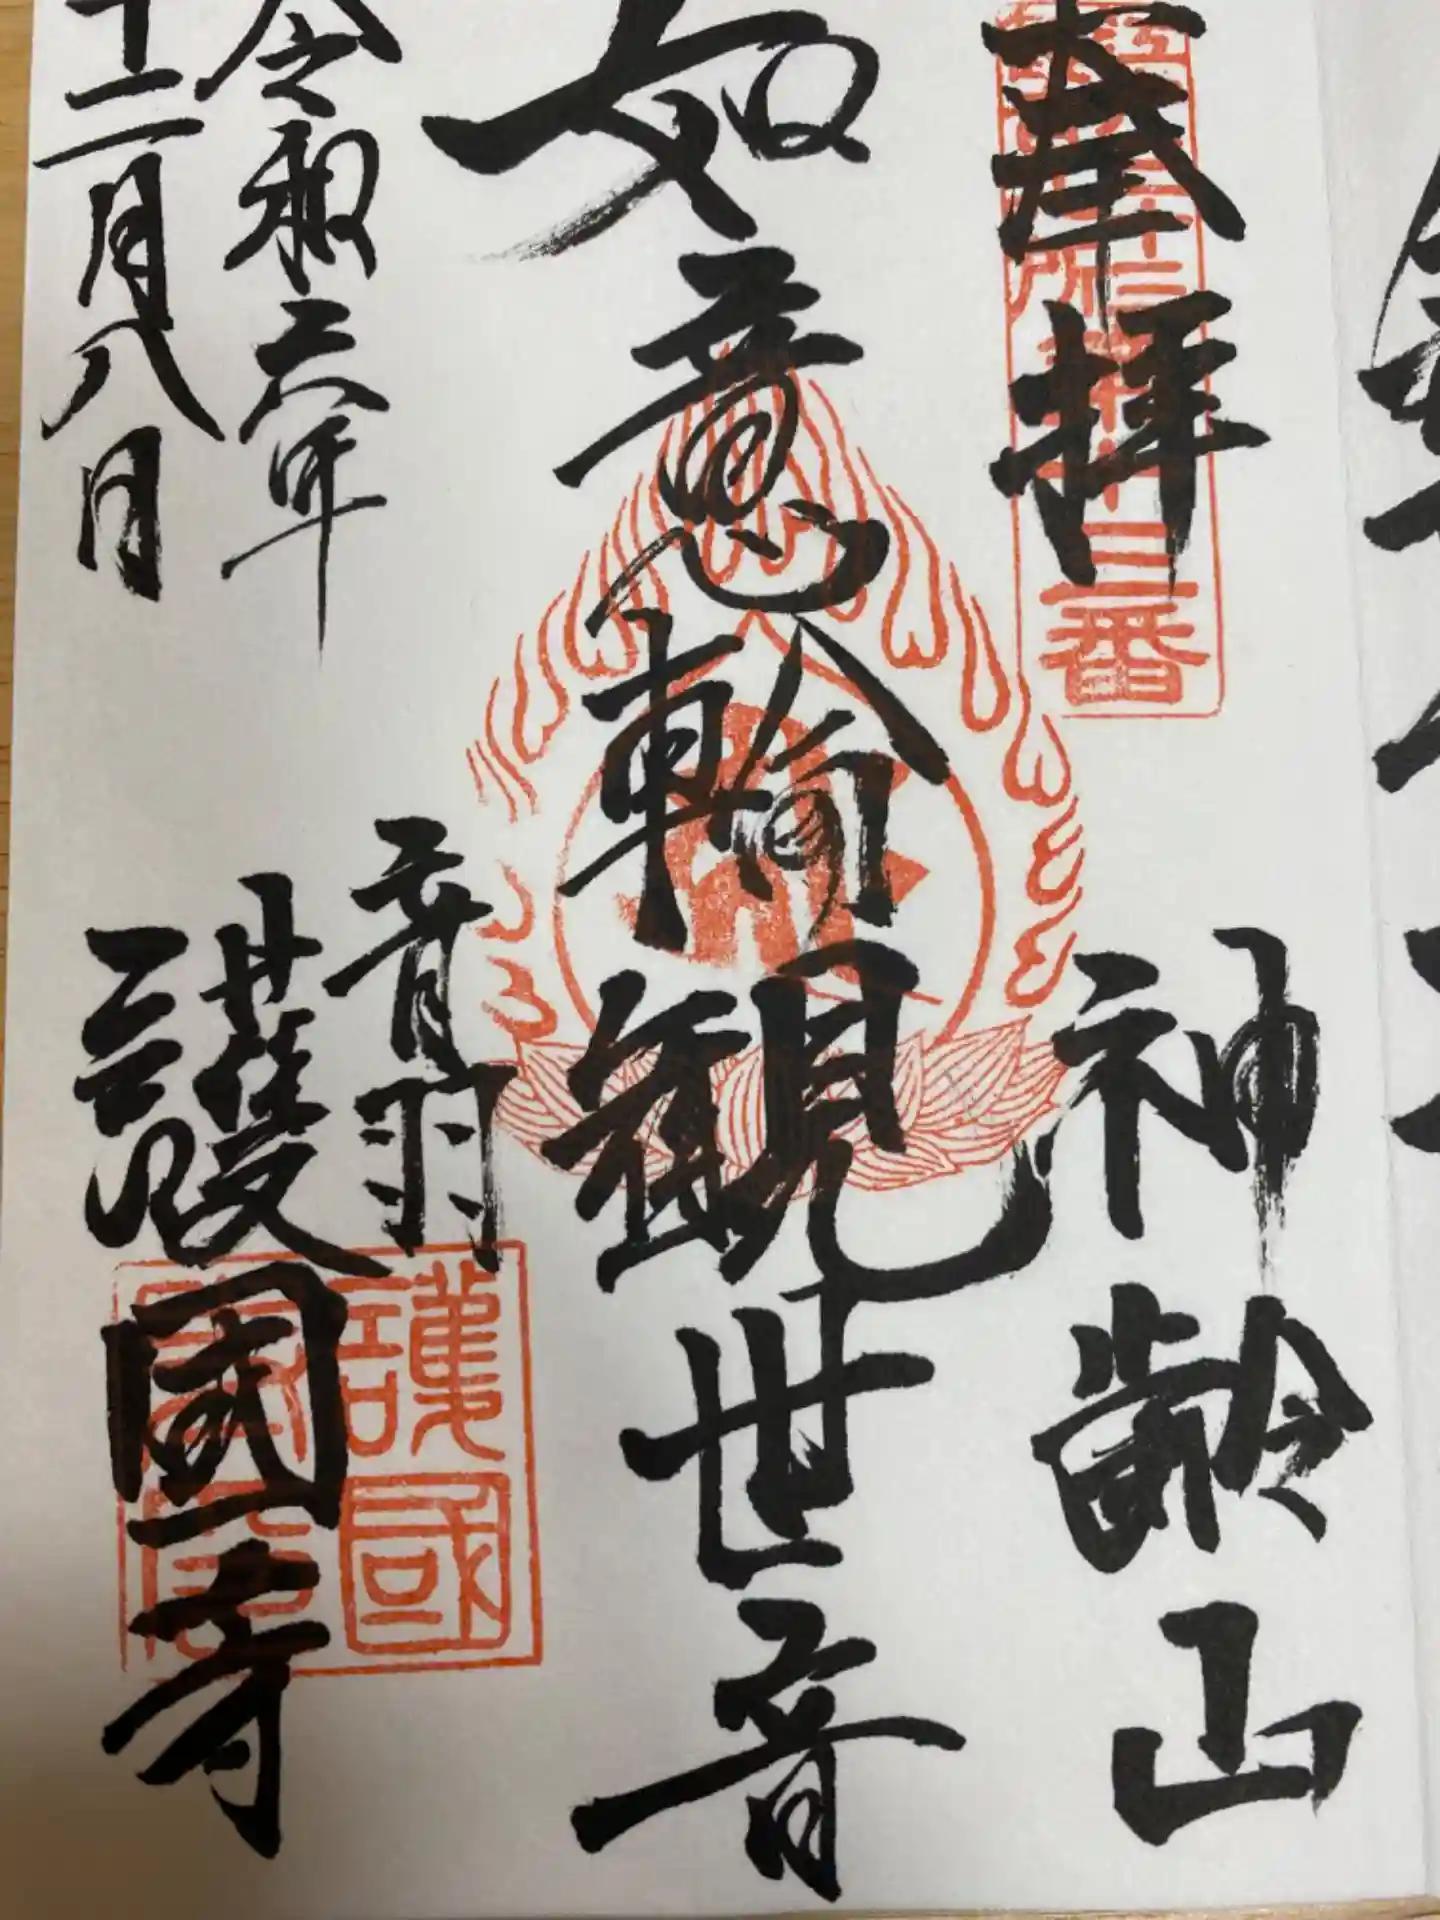 奉拝
神齢山
如意輪観世音
令和六年
十二月八日
音羽
護國寺
三番
護國